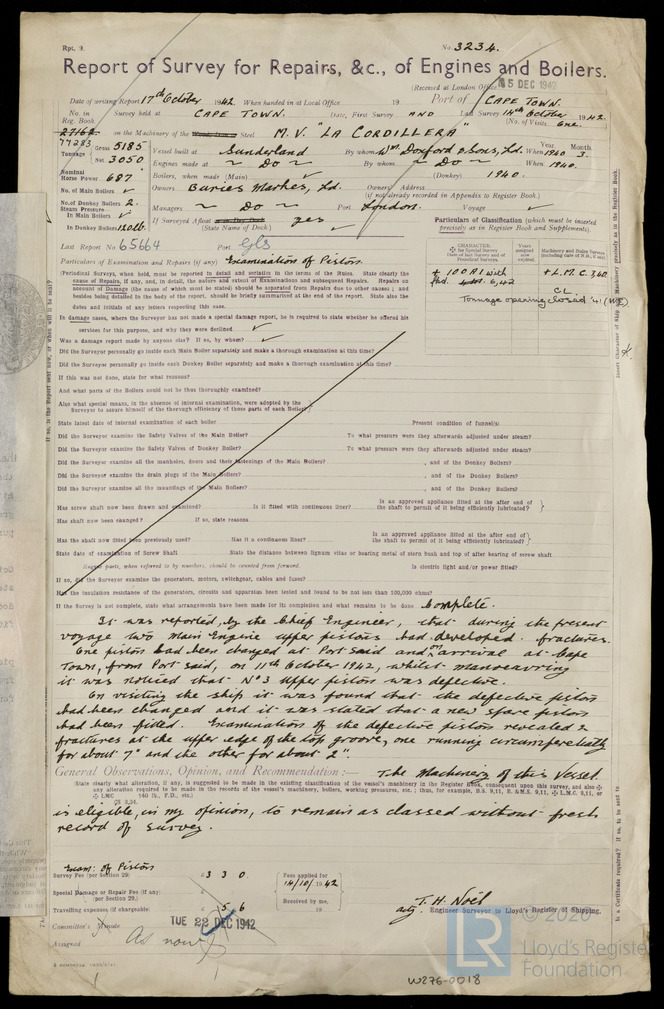 Rpt. 9.
No. 3234.
Report of Survey for Repairs, &c., of Engines and Boilers.
(Received at London Office 5 DEC 1942
Date of writing Report 17th October 1942. When handed in at Local Office 19 Port of CAPE TOWN.
No. in Reg. Book. Survey held at CAPE TOWN. Date, First Survey AND Last Survey 14th October 1942.
(No. of Visits One.
27162 on the Machinery of the Steel M.V. "LA CORDILLERA"
77283
Tonnage Gross 5185 Net 3050
Vessel built at Sunderland By whom Wm. Doxford & Sons, Ld. When 1940 Year. Month. 3.
Engines made at ~ Do ~ By whom ~ Do ~ When 1940.
Nominal Horse Power 687
Boilers, when made (Main) ✓ (Donkey) 1940.
No. of Main Boilers ✓
Owners Buries Markes, Ld. Owners' Address
(if not already recorded in Appendix to Register Book.)
No. of Donkey Boilers 2.
Managers ~ Do ~ Port London. Voyage ✓
Steam Pressure in Main Boilers ✓
in Donkey Boilers 120lb.
If Surveyed Afloat yes
(State Name of Dock)
Particulars of Classification (which must be inserted precisely as in Register Book and Supplements).
Last Report No. 65664 Port Gls
Particulars of Examination and Repairs (if any) Examination of Pistons
(Periodical Surveys, when held, must be reported in detail and seriatim in the terms of the Rules. State clearly the
cause of Repairs, if any, and, in detail, the nature and extent of Examinations and subsequent Repairs. Repairs on
account of Damage (the cause of which must be stated) should be separated from Repairs due to other causes; and
besides being detailed in the body of the report, should be briefly summarised at the end of the report. State also the
dates and initials of any letters respecting this case.
+ 100A1 with
fbd. 6,42
+ L.M.C. 3,40
CL
Tonnage opening closed '41
In damage cases, where the Surveyor has not made a special damage report, he is required to state whether he offered his
services for this purpose, and why they were declined ✓
Was a damage report made by anyone else? If so, by whom? ✓
Did the Surveyor personally go inside each Main Boiler separately and make a thorough examination at this time?
Did the Surveyor personally go inside each Donkey Boiler separately and make a thorough examination at this time?
If this was not done, state for what reasons?
And what parts of the Boilers could not be thus thoroughly examined?
Also what special means, in the absence of internal examination, were adopted by the
Surveyor to assure himself of the thorough efficiency of those parts of each Boiler?
State latest date of internal examination of each boiler Present condition of funnel(s)
Did the Surveyor examine the Safety Valves of the Main Boiler? To what pressure were they afterwards adjusted under steam?
Did the Surveyor examine the Safety Valves of Donkey Boiler? To what pressure were they afterwards adjusted under steam?
Did the Surveyor examine all the manholes, doors and their fastenings of the Main Boilers? , and of the Donkey Boilers?
Did the Surveyor examine the drain plugs of the Main Boilers? , and of the Donkey Boilers?
Did the Surveyor examine all the mountings of the Main Boilers? , and of the Donkey Boilers?
Has screw shaft now been drawn and examined? Is it fitted with continuous liner? Is an approved appliance fitted at the after end of the shaft to permit of it being efficiently lubricated?
Has shaft now been changed? If so, state reasons
Has the shaft now fitted been previously used? Has it a continuous liner? Is an approved appliance fitted at the after end of the shaft to permit of it being efficiently lubricated?
State date of examination of Screw Shaft State the distance between lignum vitæ or bearing metal of stern bush and top of after bearing of screw shaft
Engine parts, when referred to by numbers, should be counted from forward. Is electric light and/or power fitted?
If so, did the Surveyor examine the generators, motors, switchgear, cables and fuses?
Has the insulation resistance of the generators, circuits and apparatus been tested and found to be not less than 100,000 ohms?
If the Survey is not complete, state what arrangements have been made for its completion and what remains to be done Complete.
It was reported, by the Chief Engineer, that during the present
voyage two Main Engine upper pistons had developed fractures.
One piston had been changed at Port Said and on arrival at Cape
Town, from Port Said, on 11th October 1942, whilst manoeuvring
it was noticed that No 3 upper piston was defective.
On visiting the ship it was found that the defective piston
had been changed and it was stated that a new spare piston
had been fitted. Examination of the defective piston revealed 2
fractures at the upper edge of the top groove, one running circumferentially
for about 7" and the other for about 2".
General Observations, Opinion, and Recommendation:— The Machinery of this Vessel
(State clearly what alteration, if any, is suggested to be made in the existing classification of the vessel's machinery in the Register Book, consequent upon this survey, and also
any alteration required to be made in the records of the vessel's machinery, boilers, working pressures, etc.; thus, for example, B.S. 9,11, B.&M.S. 9,11, L.M.C. 9,11, or
LMC 140 lb., F.D., etc.)
CS 3,34.
is eligible, in my opinion, to remain as classed without fresh
record of survey.
Exam: of Pistons
Survey Fee (per Section 29) £ 3 3 0. Fees applied for 14/10/1942
Special Damage or Repair Fee (if any) (per Section 29.) £ Received by me,
Travelling expenses (if chargeable) £ 5 6 19
T. H. Noël
actg. Engineer Surveyor to Lloyd's Register of Shipping.
Committee's Minute TUE 22 DEC 1942
Assigned As now
© 2020
LR
Lloyd's Register
Foundation
W276-0018